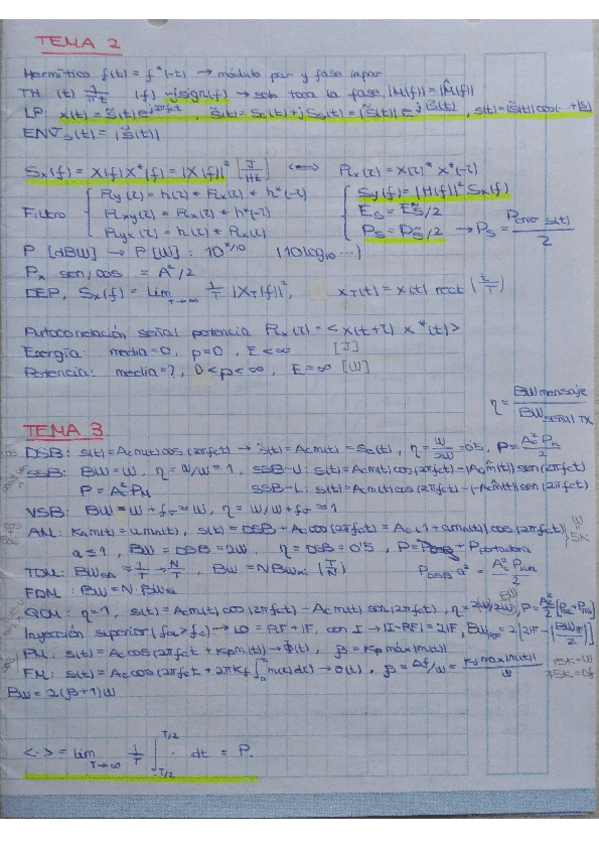 TEMA 2
Hermítica f(t) = f*(-t) → módulo par y fase impar
TH (t) 1/πt (f) -jsign(f) → solo toca la fase, |M(f)| = |M̂(f)|
LP: x(t) = s̃(t) e^j2πfct, s̃(t) = Sc(t) + jSs(t) = |s̃(t)| e^j∠s̃(t), s(t) = |s̃(t)| cos(
ENVs(t) = |s̃(t)|
Sx(f) = X(f) X*(f) = |X(f)|² [J/Hz] ⟷ Rx(τ) = x(τ) * x*(-τ)
Ry(τ) = h(τ) * Rx(τ) * h*(-τ) Sy(f) = |H(f)|² Sx(f)
Filtro Rxy(τ) = Rx(τ) * h*(-τ) Es = Es̃/2
Ryx(τ) = h(τ) * Rx(τ) Ps = Ps̃/2 → Ps = Penv s(t)/2
P [dBW] → P [W] : 10^x/10 (10log10 ...)
Px sen/cos = A²/2
DEP, Sx(f) = lim T→∞ 1/T |XT(f)|², xT(t) = x(t) rect (t/T)
Autocorrelación señal potencia Rx(τ) = <x(t+τ) x*(t)>
Energía: media = 0, p = 0, E < ∞ [J]
Potencia: media = ?, 0 < p < ∞, E = ∞ [W]
η = BW mensaje / BW señal TX
TEMA 3
DSB: s(t) = Ac m(t) cos(2πfct) → s̃(t) = Ac m(t) = Sc(t), η = W/2W = 0'5, P = Ac² PM/2
SSB: BW = W, η = W/W = 1, SSB-U: s(t) = Ac m(t) cos(2πfct) - (Ac m̂(t)) sen(2πfct)
P = Ac² PM SSB-L: s(t) = Ac m(t) cos(2πfct) - (-Ac m̂(t)) sen(2πfct)
VSB: BW = W + fv ≈ W, η = W/W+fv ≈ 1
AM: Ka m(t) = a mn(t), s(t) = DSB + Ac cos(2πfct) = Ac (1 + a mn(t)) cos(2πfct)
a ≤ 1, BW = DSB = 2W, η = DSB = 0'5, P = PDSB + Pportadora
PDSB a² = Ac² PMn/2
FDM: BW = N·BWxi
QCM: η = 1, s(t) = Ac m1(t) cos(2πfct) - Ac m2(t) sen(2πfct), η = 2W/2W, P = Ac²/2 [PM1 + PM2]
Inyección superior (fol > fc) → LO = RF + IF, con I → |I-RF| = 2IF,
PM: s(t) = Ac cos(2πfct + Kp m(t)) → Φ(t), β = Kp máx|m(t)|
FM: s(t) = Ac cos(2πfct + 2πKf ∫ m(τ) dτ) → Θ(t), β = Δf/W = Kf máx|m(t)|/W
15K = W
75K = Δf
BW = 2(β+1)W
<·> = lim T→∞ 1/T ∫ -T/2 T/2 · dt = P.